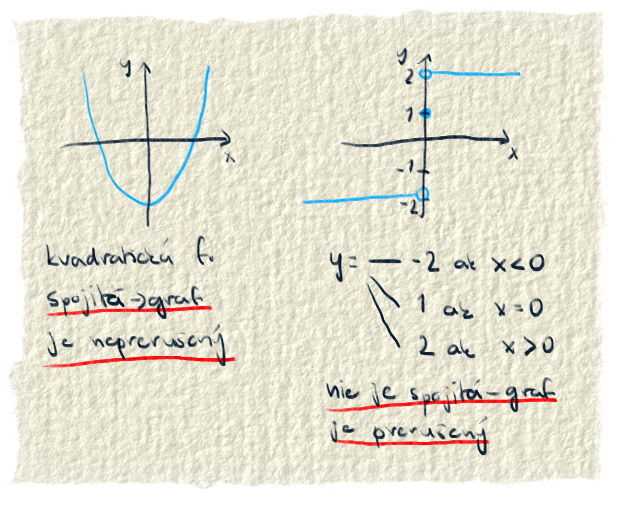 y
x
kvadratická f.
spojitá→graf
je neprerušený
y
2
1
-1
-2
x
y= -2 ak x<0
1 ak x=0
2 ak x>0
nie je spojitá-graf
je prerušený